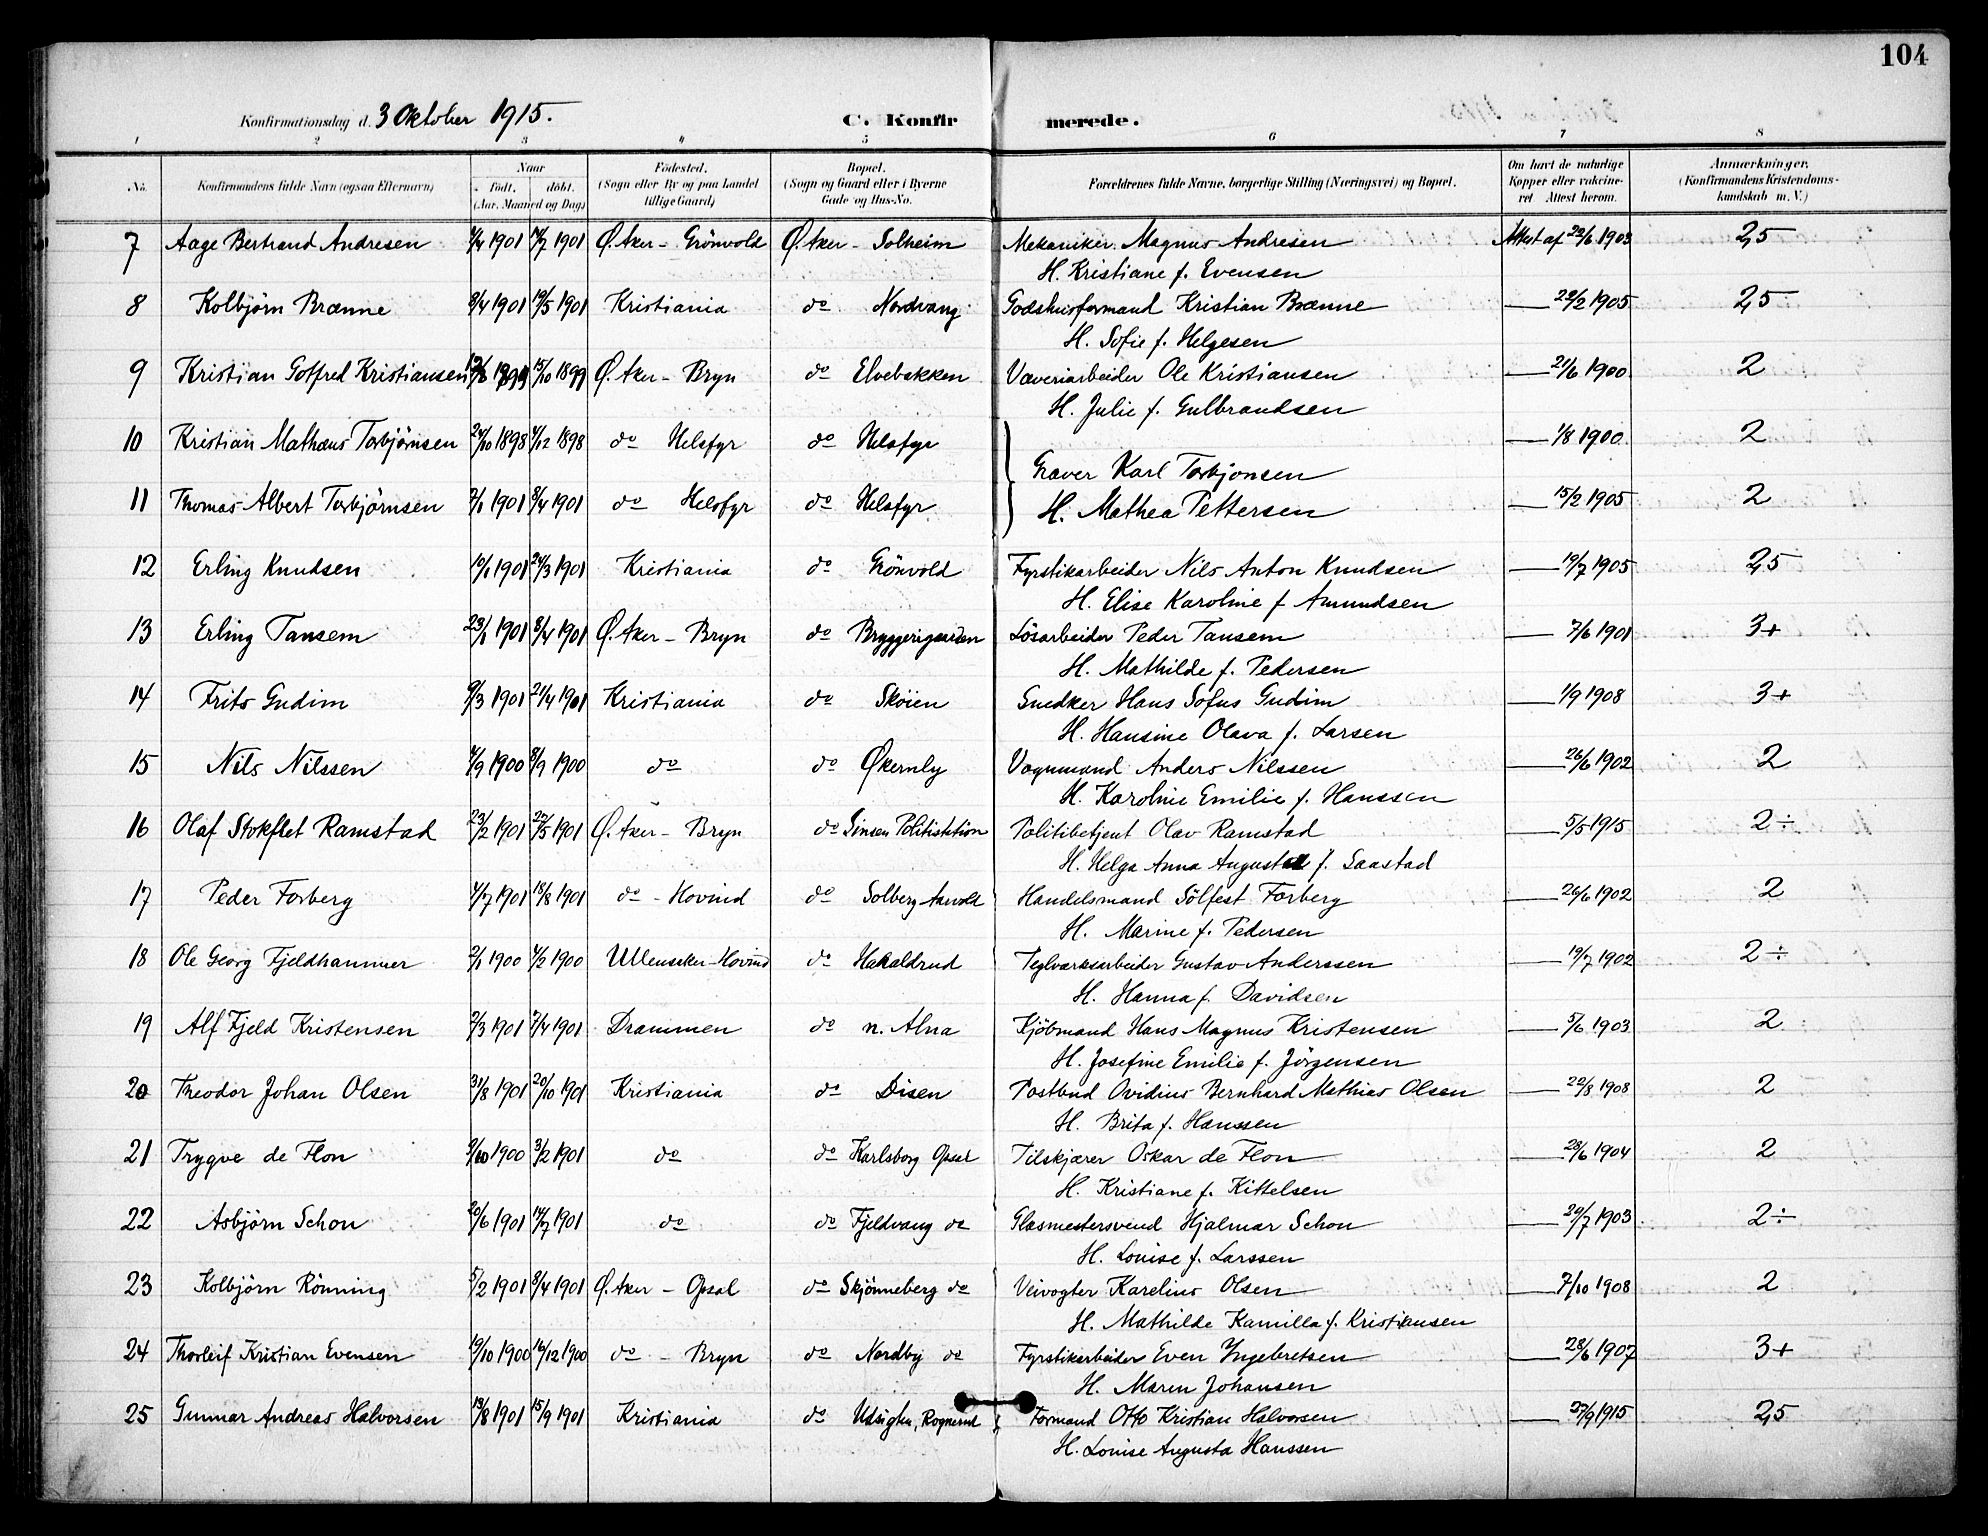 104
Konfirmationsdag d. 3 Oktober 1915.
C. Konfirmerede.
1 2 3 4 5 6 7 8
No. Konfirmandens fulde Navn (ogsaa Efternavn) Naar født. døbt. (Aar, Maaned og Dag) Fødested. (Sogn eller By og paa Landet tillige Gaard) Bopæl. (Sogn og Gaard eller i Byerne Gade og Hus-No. Forældrenes fulde Navne, borgerlige Stilling (Næringsvei) og Bopæl. Om havt de naturlige Kopper eller vakcineret Attest herom. Anmærkninger. (Konfirmandens Kristendomskundskab m. V.)
7 Aage Bertrand Andresen /4 1901 14/7 1901 Ø. Aker - Grönvold Ø. Aker - Solheim Mekaniker Magnus Andresen Attest af 22/6 1903 2,5
H. Kristiane f. Evensen
8 Kolbjörn Brænne 8/4 1901 19/5 1901 Kristiania do Nordvang Godshusformand Kristian Brænne — 28/2 1905 2,5
H. Sofie f. Helgesen
9 Kristian Gotfred Kristiansen 1899 15/10 1899 Ø. Aker - Bryn do Elvebakken Væveriarbeider Ole Kristiansen — 21/6 1900 2
H. Julie f. Gulbrandsen
10 Kristian Mathæus Torbjörnsen 24/10 1898 4/12 1898 do Helsfyr do Helsfyr — 1/8 1900 2
Graver Karl Torbjonsen
11 Thomas Albert Torbjörnsen 7/1 1901 8/4 1901 do Helsfyr do Helsfyr — 15/2 1905 2
H. Mathea Pettersen
12 Erling Knudsen 10/1 1901 24/3 1901 Kristiania do Grönvold Fyrstikarbeider Nils Anton Knudsen — 19/7 1905 2,5
H. Elise Karoline f Amundsen
13 Erling Tansem 23/1 1901 8/4 1901 Ø. Aker - Bryn do Bryggerigaarden Lösarbeider Peder Tansem — 7/6 1901 3+
H. Mathilde f. Pedersen
14 Frits Gudim 9/3 1901 21/4 1901 Kristiania do Sköien Snedker Hans Sofus Gudim — 1/9 1908 3+
H. Hansine Olava f. Larsen
15 Nils Nilssen 4/9 1900 8/9 1900 do do Økernly Vognmand Anders Nilssen — 26/6 1902 2
H. Karoline Emilie f. Hanssen
16 Olaf Stokflet Ramstad 23/2 1901 27/5 1901 Ø. Aker - Bryn do Sinsen Politistation Politibetjent Olav Ramstad — 5/5 1915 2÷
H. Helga Anna Augusta f. Saastad
17 Peder Forberg 4/7 1901 18/8 1901 do - Hovind do Solberg Aarvold Handelsmand Sölfest Forberg — 26/6 1902 2
H. Marine f. Pedersen
18 Ole Georg Fjeldhammer 2/1 1900 4/2 1900 Ullensaker - Hovind do Hakaldrud Teglværksarbeider Gustav Anderssen — 19/7 1902 2÷
H. Hanna f. Davidsen
19 Alf Fjeld Kristensen 2/3 1901 7/4 1901 Drammen do n. Alna Kjöbmand Hans Magnus Kristensen — 5/6 1903 2
H. Josefine Emilie f. Jörgensen
20 Theodor Johan Olsen 31/8 1901 20/10 1901 Kristiania do Disen Postbud Ovidius Bernhard Mathias Olsen — 22/8 1908 2
H. Brita f. Hanssen
21 Trygve de Flon 9/10 1900 3/2 1901 do do Karlsborg Opsal Tilskjærer Oskar de Flon — 28/6 1904 2
H. Kristiane f. Kittelsen
22 Asbjörn Schon 20/6 1901 14/7 1901 do do Fjeldvang do Glasmestersvend Hjalmar Schon — 29/7 1903 2÷
H. Louise f. Larssen
23 Kolbjörn Rönning 5/2 1901 8/4 1901 Ø. Aker - Opsal do Skjönneberg do Veivogter Karelius Olsen — 7/10 1908 2
H. Mathilde Kamilla f. Kristiansen
24 Thorleif Kristian Evensen 19/10 1900 16/12 1900 do - Bryn do Nordby do Fyrstikarbeider Even Yngebretsen — 28/6 1907 3+
H. Maren Johansen
25 Gunnar Andreas Halvorsen 13/8 1901 15/9 1901 Kristiania do Udsigten, Rognerud Formand Otto Kristian Halvorsen — 27/9 1915 2,5
H. Louise Augusta Hanssen